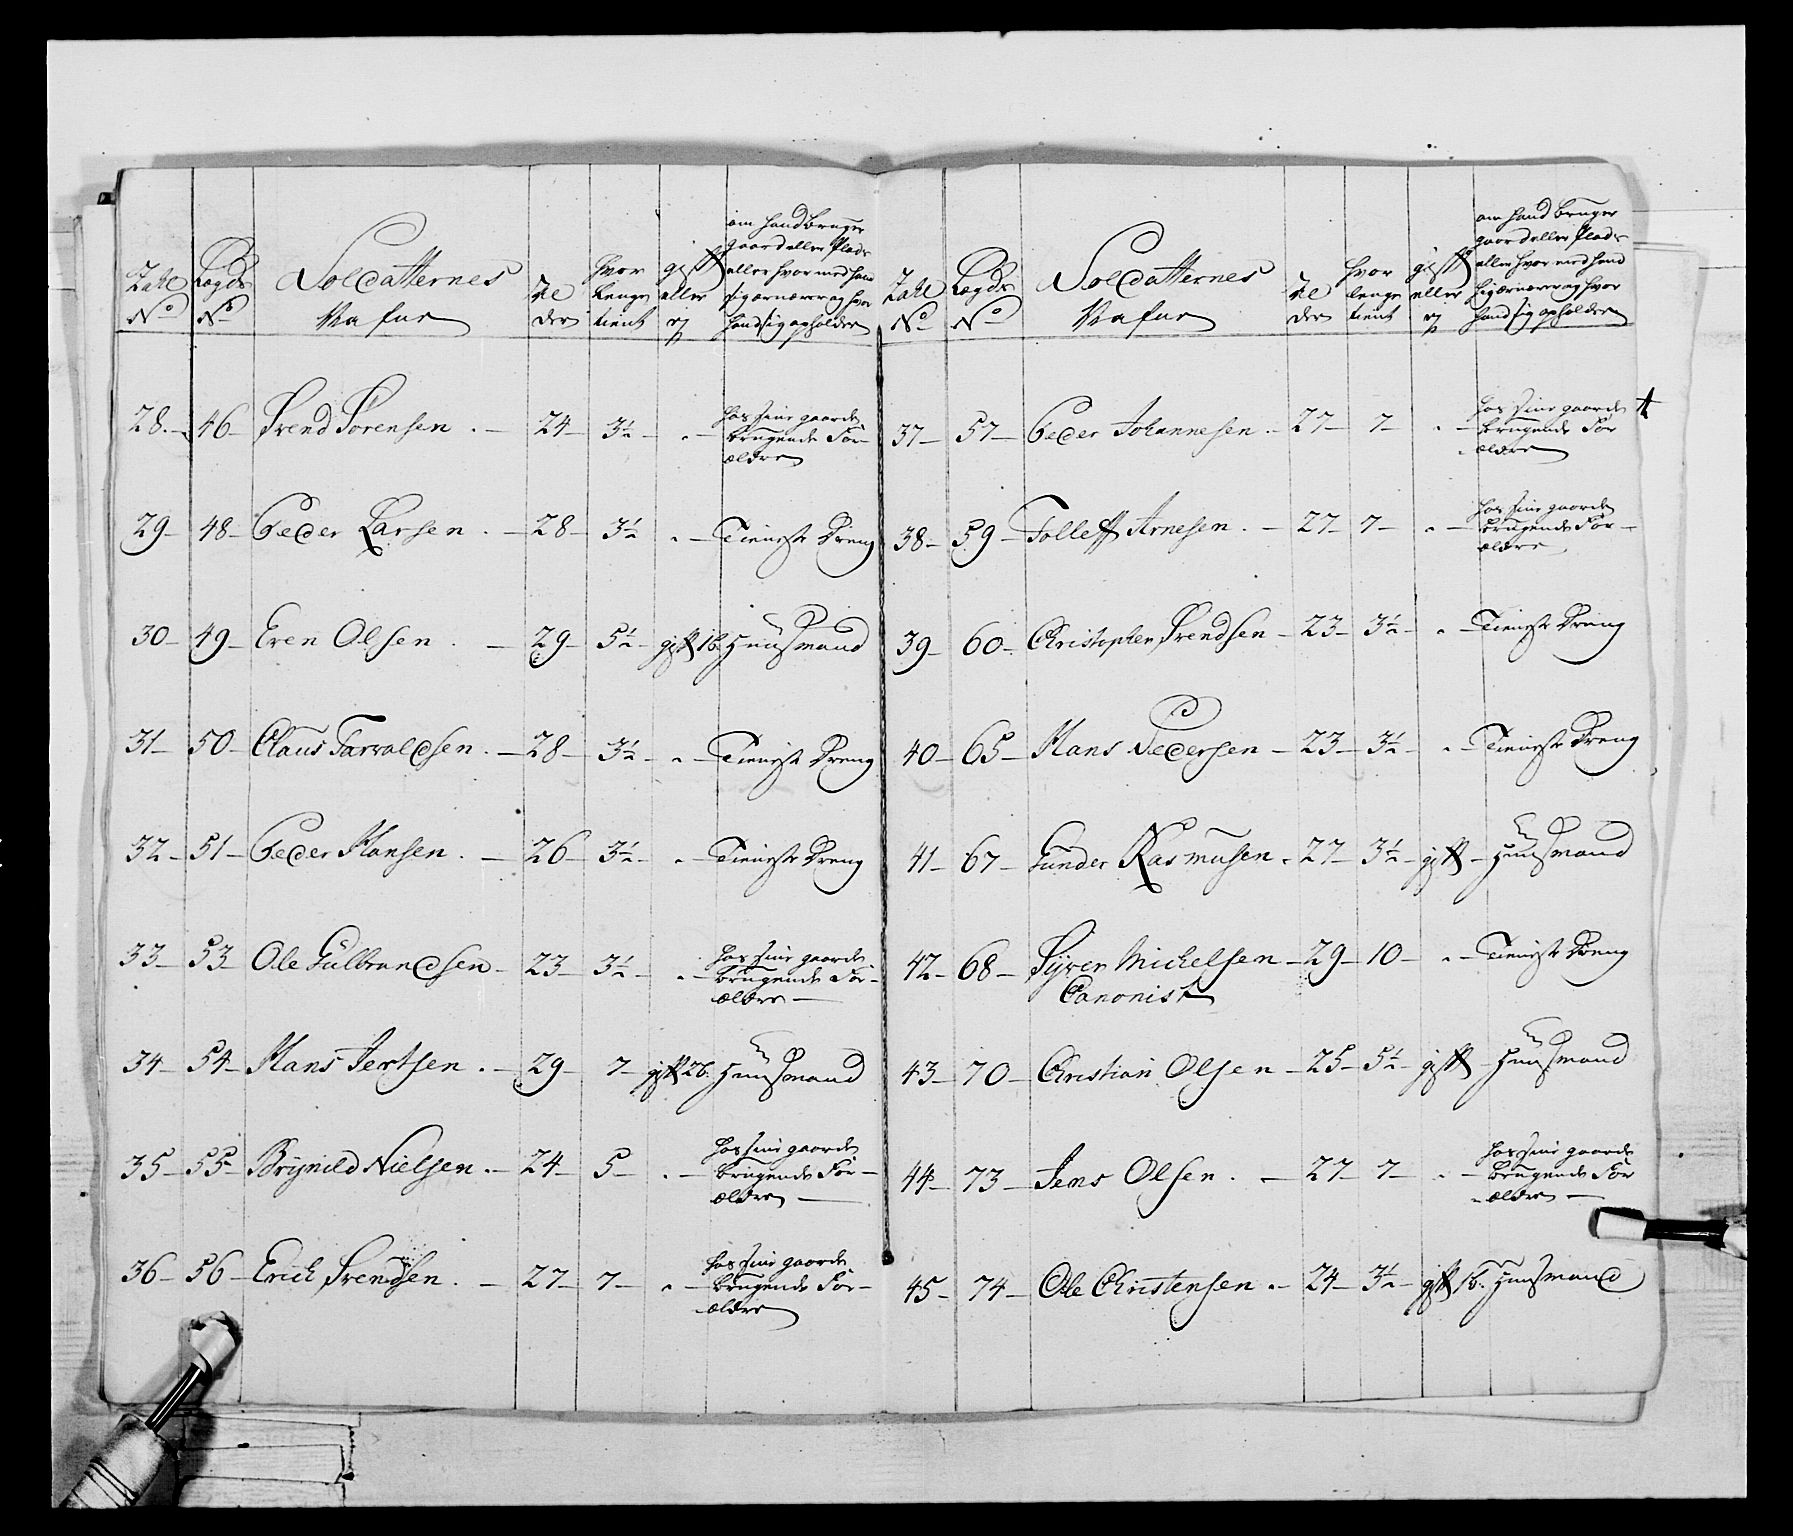 Zahl No
Lægds No
Soldatternes Nafne
Al der
hvor lenge tient
gifft eller ej
om hand bruger gaard eller Plads eller hvor med hand sig ærnærer og hvor hand sig opholder
28. 46 Svend Sørensen. 24 3½ . hos sine gaard brugende For-ældre
29 48 Peder Larsen. 28 3½ . Tieniste Dreng
30 49 Even Olsen. 29 5½ gifft 1b. Huusmand
31 50 Claus Tarvaldsen. 28 3½ . Tieniste Dreng
32 51 Peder Hansen. 26 3½ . Tieniste Dreng
33 53 Ole Gulbrandsen 23 3½ . hos sine gaard brugende For-ældre
34 54 Hans Jertsen. 29 7 gifft 2b. Huusmand
35 55 Brynild Nielsen. 24 5 . hos sine gaard brugende For-ældre
36 56 Erich Svendsen. 27 7 . hos sine gaard brugende For-ældre
Zahl No
Lægds No
Soldatternes Nafne
Al der
hvor lenge tient
gifft eller ej
om hand bruger gaard eller Plads eller hvor med hand sig ærnærer og hvor hand sig opholder
37 57 Peder Johannesen. 27 7 . hos sine gaard brugende For ældre
38 59 Tolleff Arnesen. 27 7 . hos sine gaard brugende For-ældre
39 60 Christopher Svendsen 23 3½ . Tieniste Dreng
40 65 Hans Pedersen 23 3½ . Tieniste Dreng
41 67 Gunder Rasmusen. 27 3½ gifft Huusmand
42 68 Syver Michelsen 29 10 . Tieniste Dreng
Canonist
43 70 Christian Olsen 25 5½ gifft Huusmand
44 73 Jens Olsen. 27 7 . hos sine gaard brugende For ældre
45 74 Ole Christensen. 24 3½ gifft 1b. Huusmand